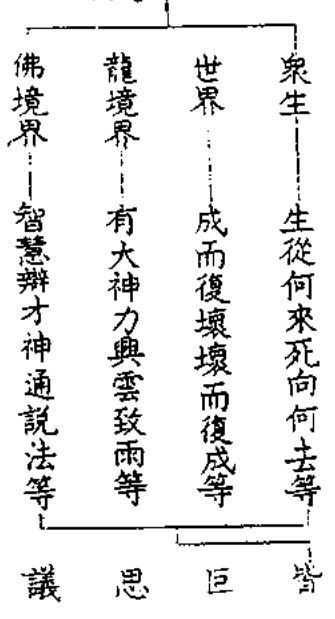 衆生
生從何來死向何去等
世界
成而復壞壞而復成等
龍境界
有大神力興雲致雨等
佛境界
智慧辯才神通説法等
皆叵思議